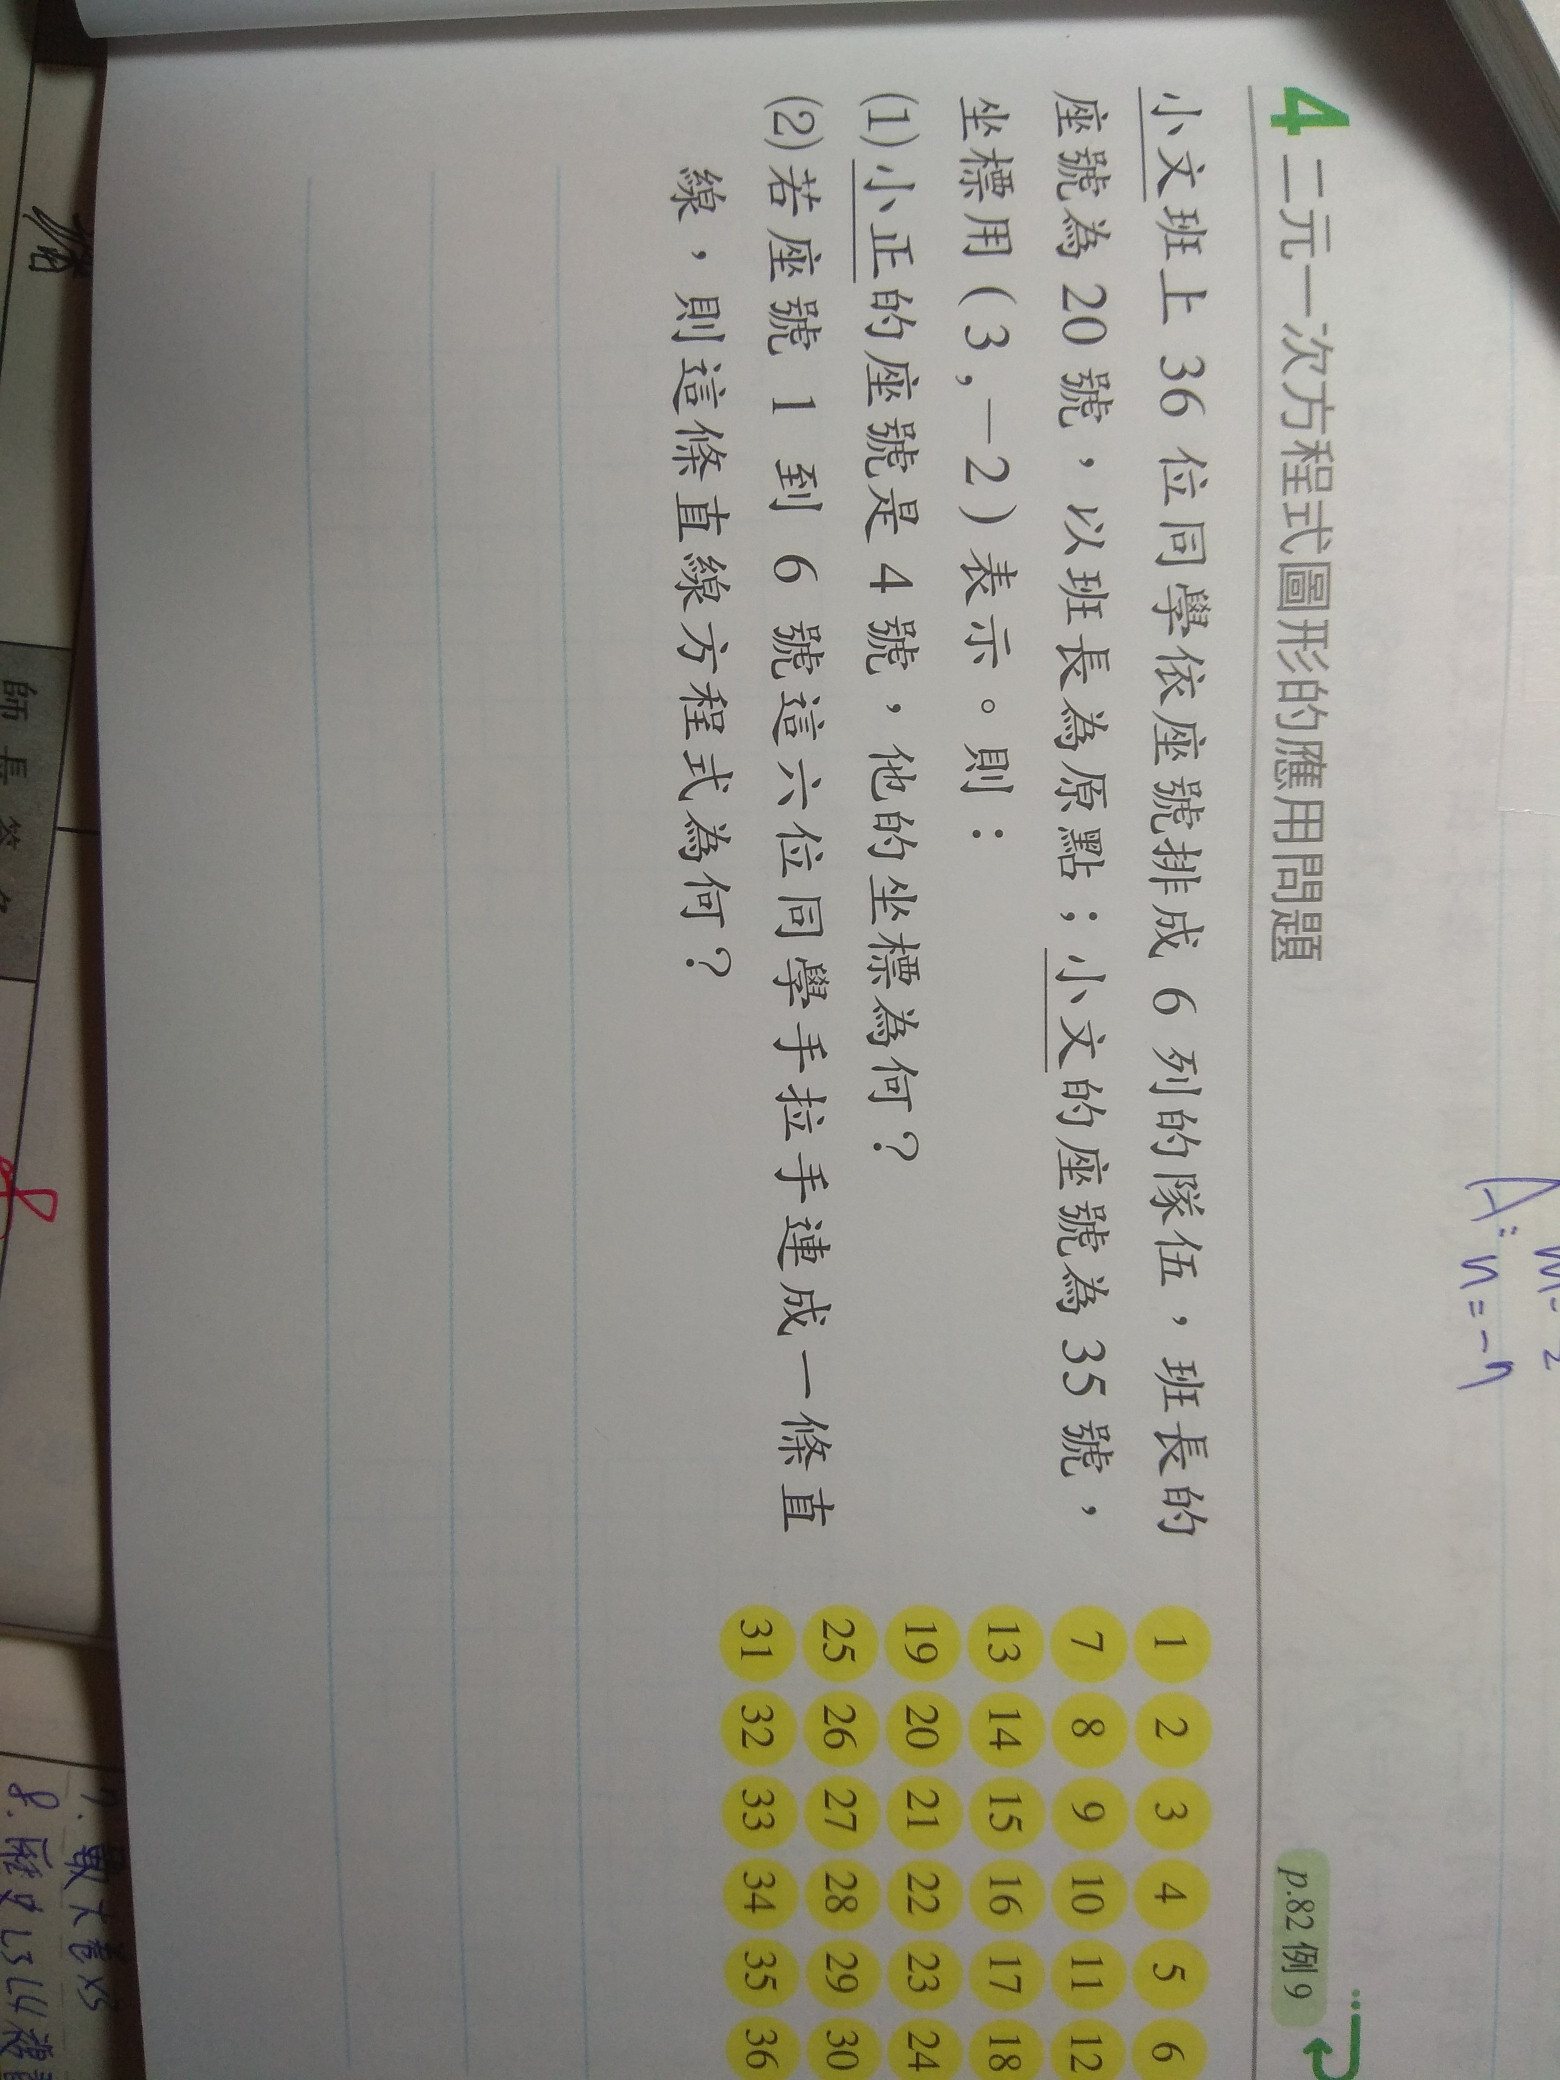 4 二元一次方程式圖形的應用問題
p.82 例 9
小文班上 36 位同學依座號排成 6 列的隊伍，班長的
座號為 20 號，以班長為原點；小文的座號為 35 號，
坐標用（3,－2）表示。則：
(1) 小正的座號是 4 號，他的坐標為何？
(2) 若座號 1 到 6 號這六位同學手拉手連成一條直
線，則這條直線方程式為何？
1 2 3 4 5 6
7 8 9 10 11 12
13 14 15 16 17 18
19 20 21 22 23 24
25 26 27 28 29 30
31 32 33 34 35 36
師長簽名